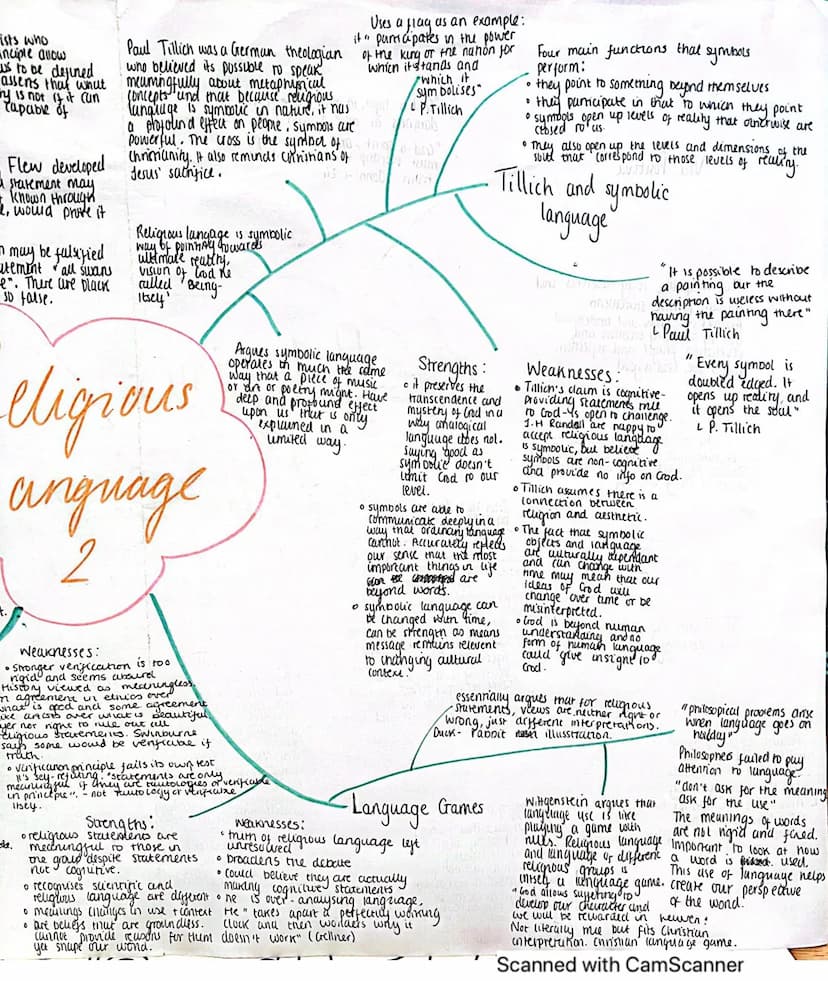 ists who
nciple allow
us to be defined
assens that what
hy is not if it can
capable of
Flew developed
statement may
known through
e, would prove it
n may be falsified
atement "all swans
e". There are black
so false.
Paul Tillich was a German theologian
who believed its possible to speak
meaningfully about metaphysical
concepts and that because religious
language is symbolic in nature, it has
a profound effect on people. Symbols are
powerful. The cross is the symbol of
Christianity. It also reminds Christians of
Jesus' sacrifice.
Uses a flag as an example:
it "participates in the power
of the king or the nation for
which it stands and
which it
symbolises"
L P.Tillich
Four main functions that symbols
perform:
• they point to something beyond themselves
• they participate in that to which they point
• symbols open up levels of reality that otherwise are
closed to us.
• They also open up the levels and dimensions of the
soul that correspond to those levels of reality.
Tillich and symbolic
language
Religious language is symbolic
way of pointing towards
ultimate reality,
vision of God he
called 'Being-
itself'
"It is possible to describe
a painting but the
description is useless without
having the painting there"
L Paul Tillich
"Every symbol is
doubled edged. It
opens up reality, and
it opens the soul"
L P. Tillich
Argues symbolic language
operates in much the same
way that a piece of music
or art or poetry might. Have
deep and profound effect
upon us that is only
explained in a
limited way.
Strengths:
• it preserves the
transcendence and
mystery of God in a
way analogical
language does not.
Saying good as
symbolic doesn't
limit God to our
level.
• symbols are able to
communicate deeply in a
way that ordinary language
cannot. Accurately reflects
our sense that the most
important things in life
are
beyond words.
• symbolic language can
be changed with time,
can be strength as means
message remains relevent
to unchanging cultural
context.
Weaknesses:
• Tillich's claim is cognitive-
providing statements true
to God-is open to challenge.
J.H Randall are happy to
accept religious language
is symbolic, but believe
symbols are non-cognitive
and provide no info on God.
• Tillich assumes there is a
connection between
religion and aesthetic.
• The fact that symbolic
objects and language
are culturally dependant
and can change with
time may mean that our
ideas of God will
change over time or be
misinterpreted.
• God is beyond human
understanding and no
form of human language
could give insight to
God.
eligious
anguage
2
Weaknesses:
• Stronger verification is too
rigid and seems absurd
History viewed as meaningless.
n agreement in ethics over
what is good and some agreement
like artists over what is beautiful
yer not right to rule out all
religious statements. Swinburne
says some would be verifiable if
truth.
• Verification principle fails its own test
It's self-refuting. "Statements are only
meaningful if they are tautologies or verifiable
in principle". - not tautology or verifiable
itself.
essentially argues that for religious
statements, views are neither right or
wrong, just different interpretations.
Duck-rabbit illusstration.
Language Games
"philosopical problems arise
when language goes on
holiday"
Philosophers failed to pay
attention to language.
"don't ask for the meaning
ask for the use"
The meanings of words
are not rigid and fixed.
Important to look at how
a word is used.
This use of language helps
create our perspective
of the world.
Wittgenstein argues that
language use is like
playing a game with
rules. Religious language
and language of different
religious groups is
itself a language game.
"God allows suffering to
develop our character and
we will be rewarded in heaven".
Not literally true but fits Christian
interpretation. Christian language game.
Strengths:
• religious statements are
meaningful to those in
the game despite statements
not cognitive.
• recognises scientific and
religious language are different
• meanings changes in use + context
• are beliefs that are groundless.
cannot provide reasons for them
yet shape our world.
Weaknesses:
• truth of religious language left
unresolved
• broadens the debate
• could believe they are actually
making cognitive statements
• he is over-analysing language.
He "takes apart a perfectly working
clock and then wonders why it
doesn't work" (Gellner)
Scanned with CamScanner